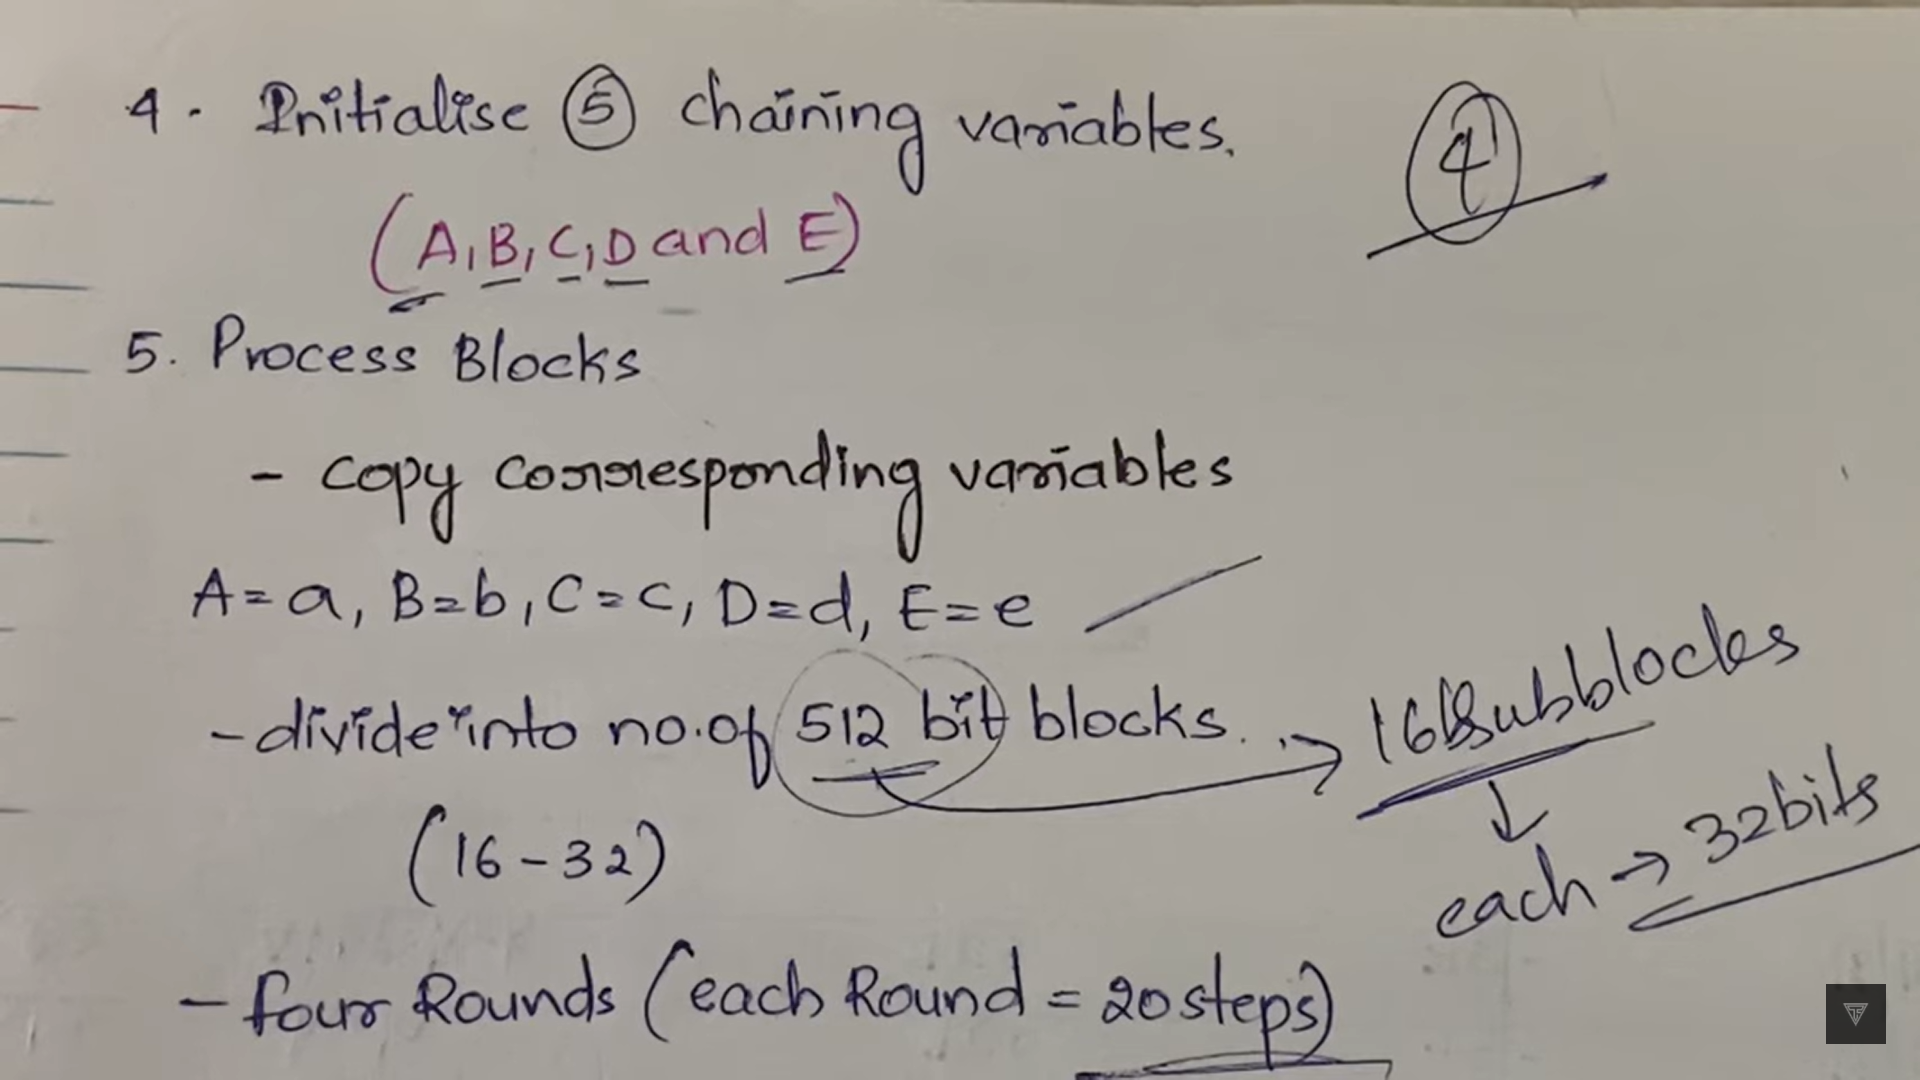 4. Initialise 5 chaining variables.
4
(A, B, C, D and E)
5. Process Blocks
- copy corresponding variables
A=a, B=b, C=c, D=d, E=e
- divide into no.of 512 bit blocks. → 16 Subblocks
(16-32)
each → 32bits
- four Rounds (each Round = 20 steps)